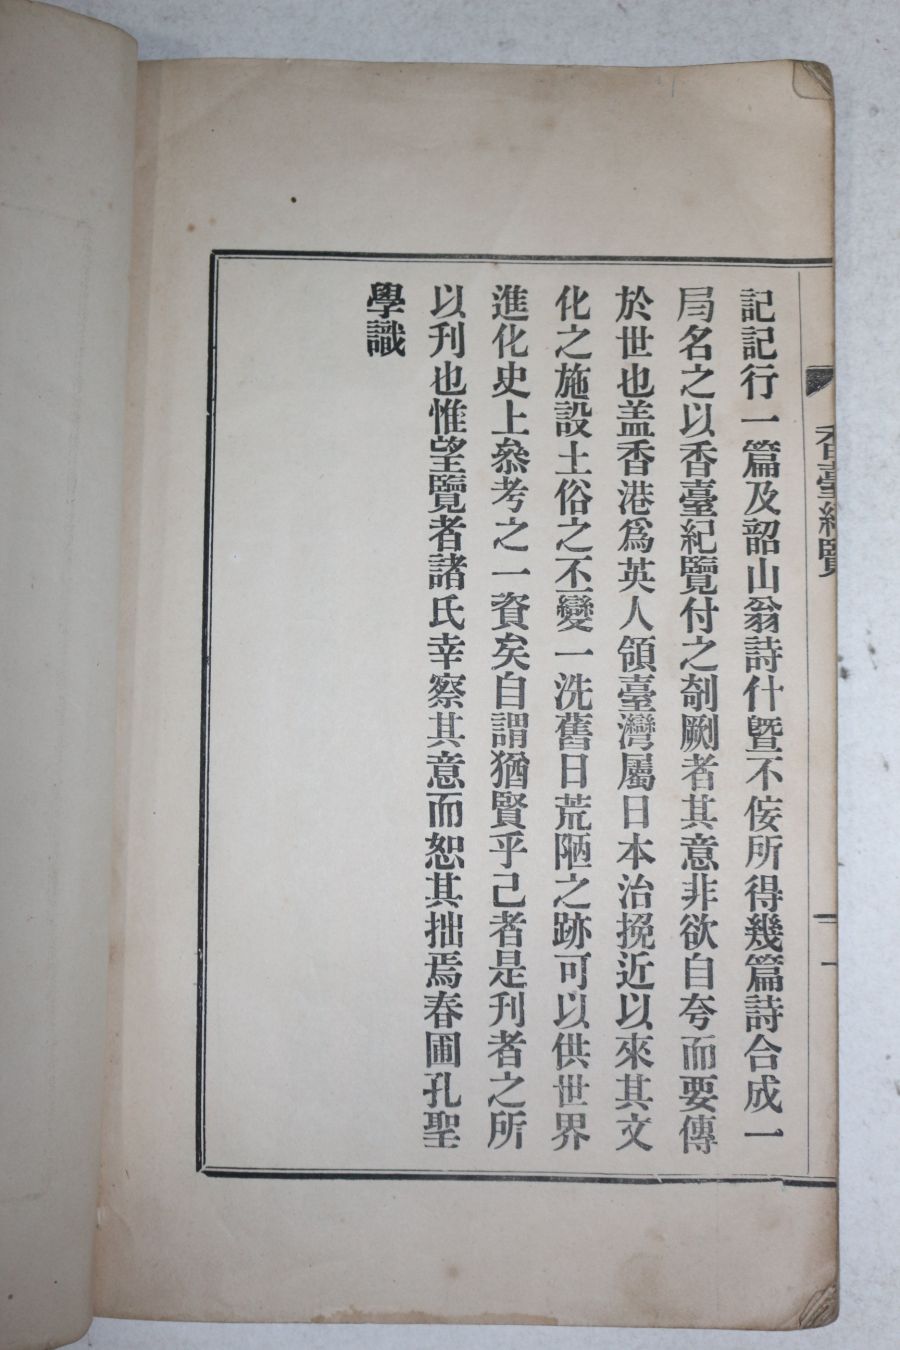 香臺紀覽
一
記記行一篇及韶山翁詩什曁不侫所得幾篇詩合成一
局名之以香臺紀覽付之剞劂者其意非欲自夸而要傳
於世也盖香港爲英人領臺灣屬日本治挽近以來其文
化之施設土俗之不變一洗舊日荒陋之跡可以供世界
進化史上叅考之一資矣自謂猶賢乎己者是刋者之所
以刋也惟望覽者諸氏幸察其意而恕其拙焉春圃孔聖
學識